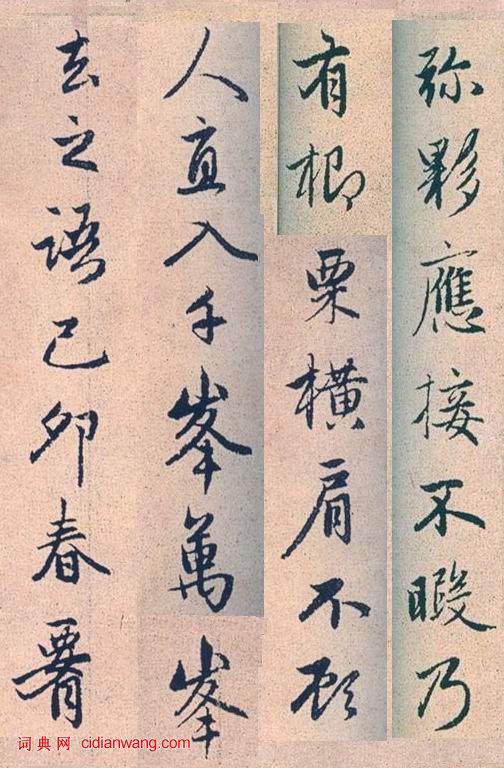 弥夥應接不暇乃
有楖栗橫肩不顧
人直入千峯萬峯
去之語己卯春
词典网 cidianwang.com